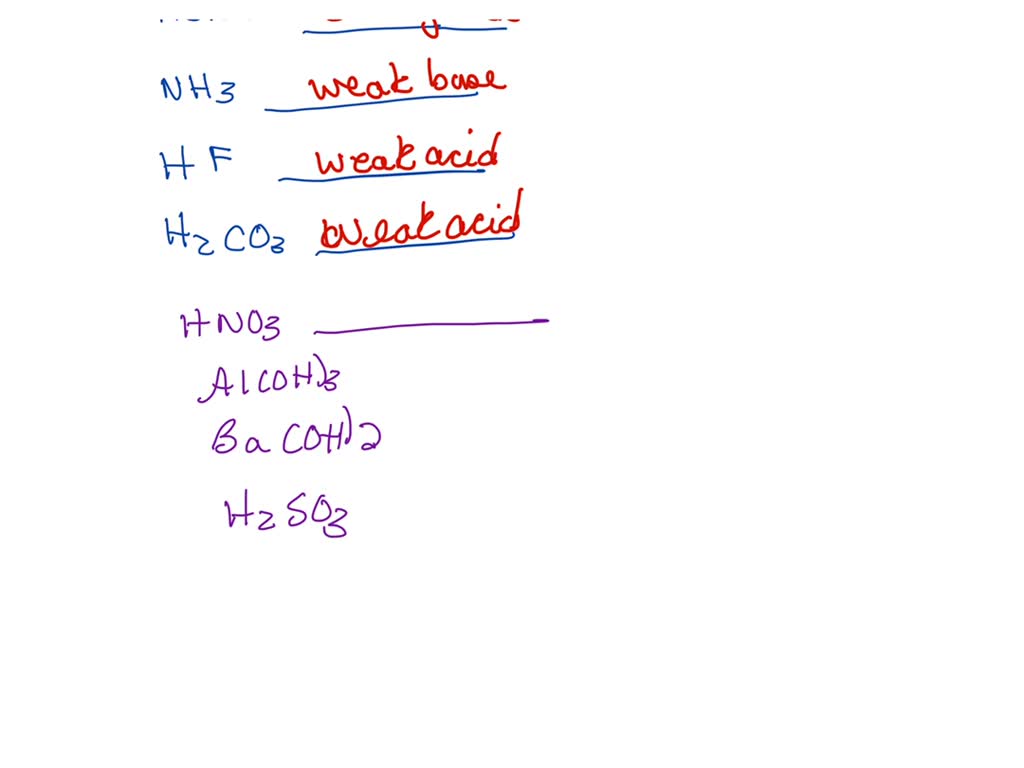 NH3 weak base
HF weak acid
H2CO3 weak acid
HNO3
Al(OH)3
Ba(OH)2
H2SO3